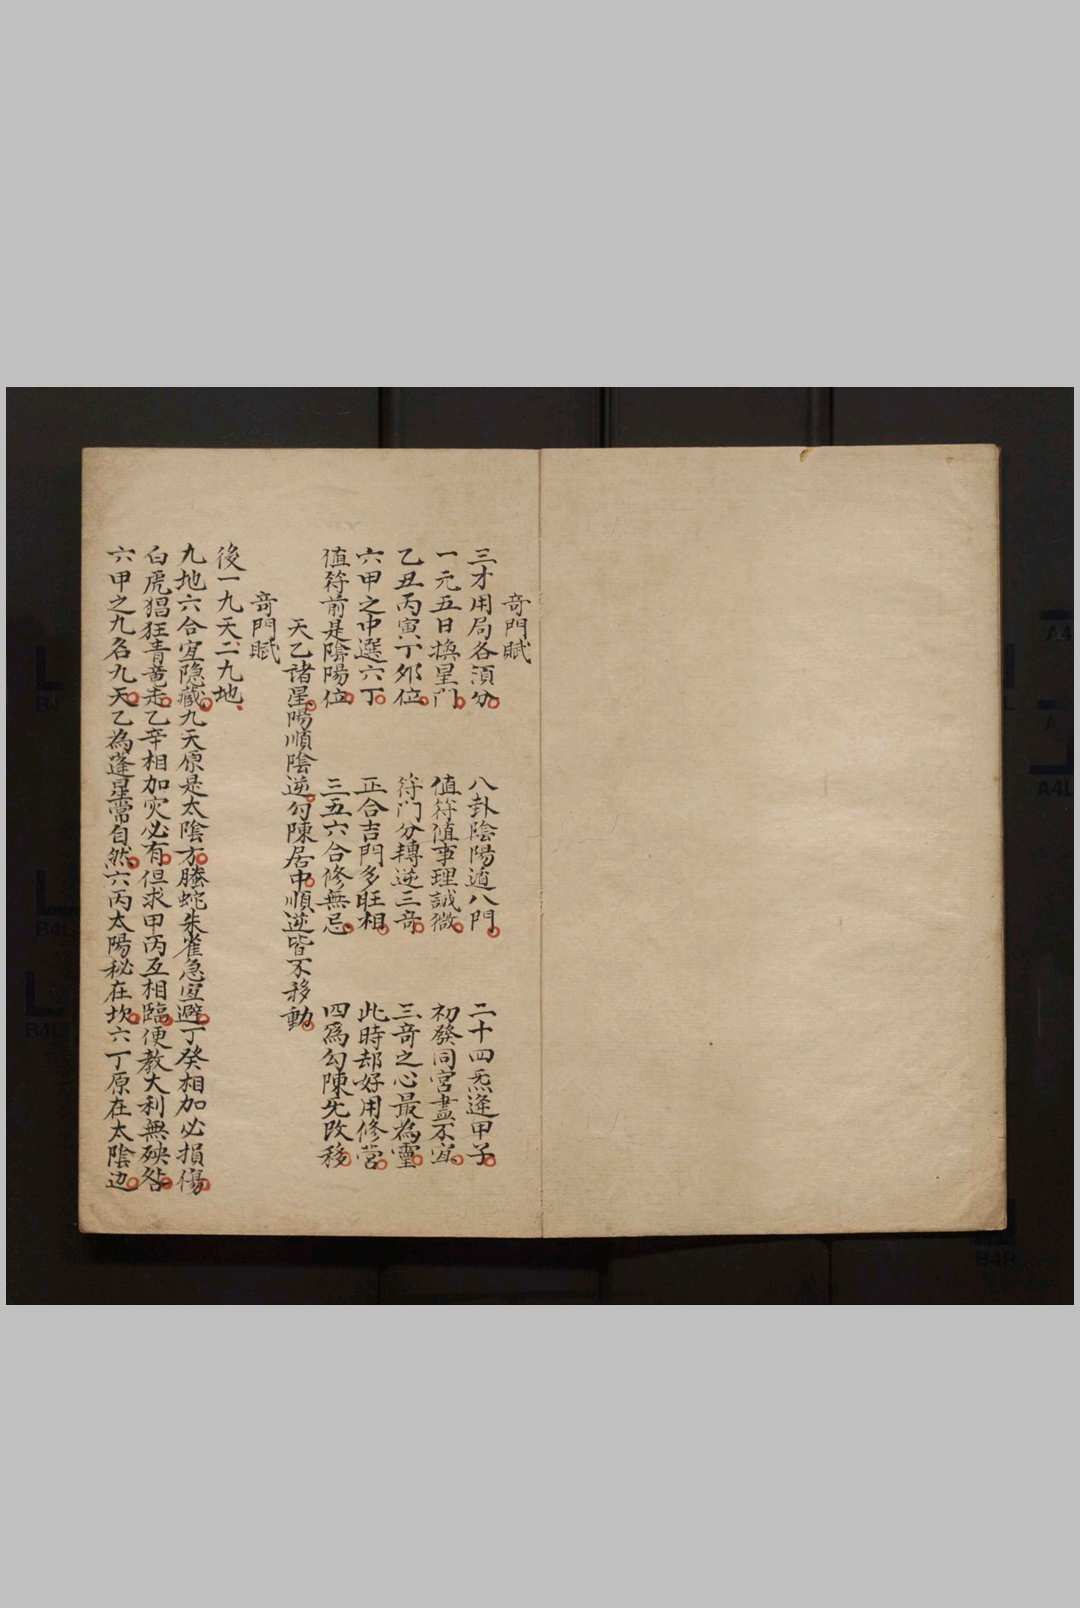 奇門賦
三才用局各湏分 八卦陰陽遁八門 二十四炁逢甲子
一元五日換星門 值符值事理誠微 初發同宮盡不宜
乙丑丙寅丁夘位 符门分轉逆三奇 三奇之心最為靈
六甲之中選六丁 正合吉門多旺相 此時却好用修営
值符前是陰陽位 三五六合修無忌 四為勾陳先改移
天乙諸星陽順陰逆勾陳居中順逆皆不移動
奇門賦
後一九天二九地
九地六合宜隐藏九天原是太陰方騰蛇朱雀急宜避丁癸相加必損傷
白虎猖狂青竜走乙辛相加灾必有但求甲丙互相臨便教大利無殃咎
六甲之九名九天乙為蓬星常自然六丙太陽秘在坎六丁原在太陰边